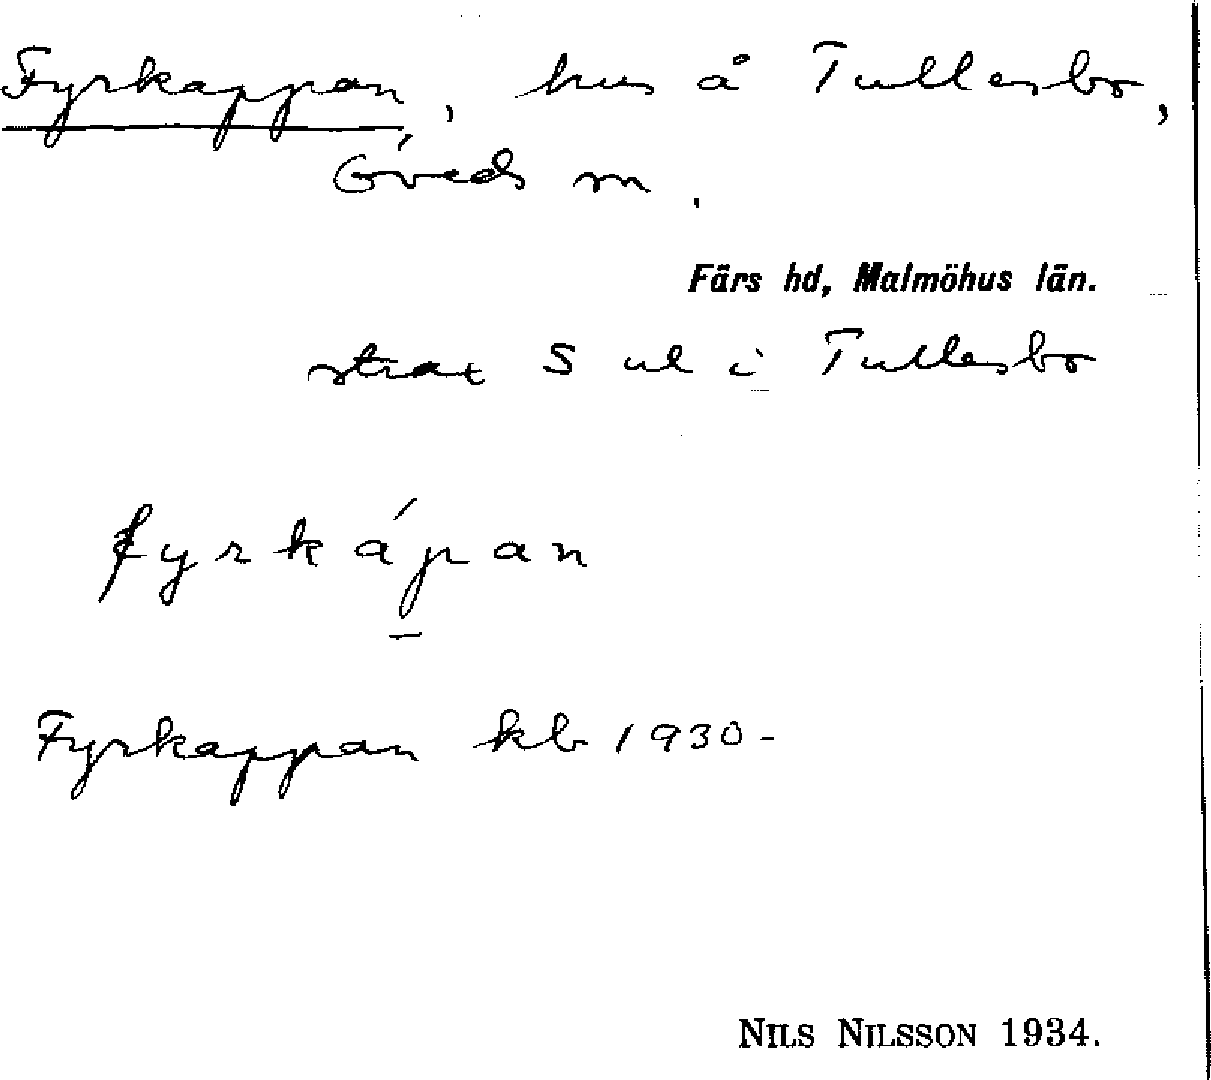 Fyrkappan, hus å Tullesbo,
Öveds sn.
Färs hd, Malmöhus län.
strax S ul i Tullesbo
fyrkápan
Fyrkappan kb 1930-
NILS NILSSON 1934.